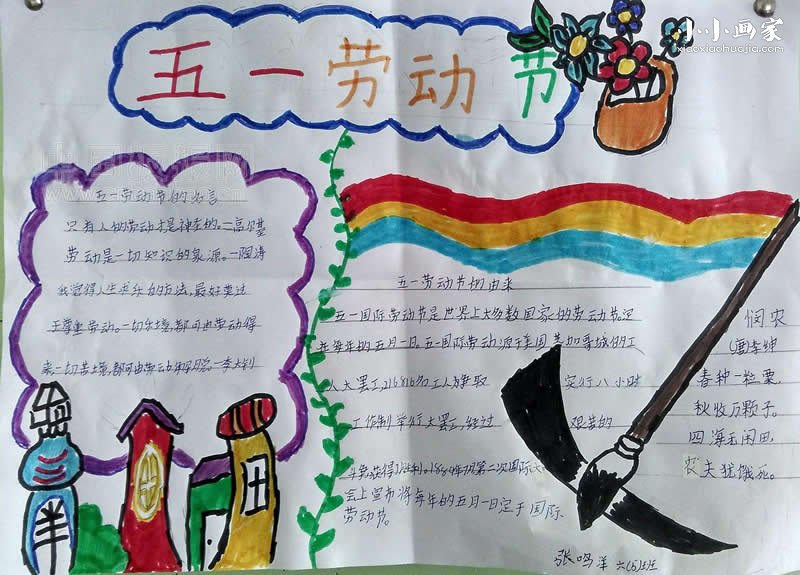 五一劳动节
小小画家
xiaoxiaohuajia.com
五一劳动节的名言
只有人的劳动才是神圣的。一高尔基
劳动是一切知识的泉源。一陶涛
我觉得人生求乐的方法,最好莫过
于尊重劳动。一切乐境,都可由劳动得
来,一切苦境,都可由劳动解脱。一李大钊
五一劳动节的由来
五一国际劳动节是世界上大多数国家的劳动节。定
在每年的五月一日。五一国际劳动源于美国芝加哥城的工
人大罢工,216816名工人为争取 实行八小时
工作制举行大罢工,经过 艰苦的
斗争,获得了胜利。1889年7月第二次国际大
会上宣布将每年的五月一日定于国际
劳动节。
悯农
(唐)李绅
春种一粒粟,
秋收万颗子。
四海无闲田,
农夫犹饿死。
张鸣洋 六(5)班